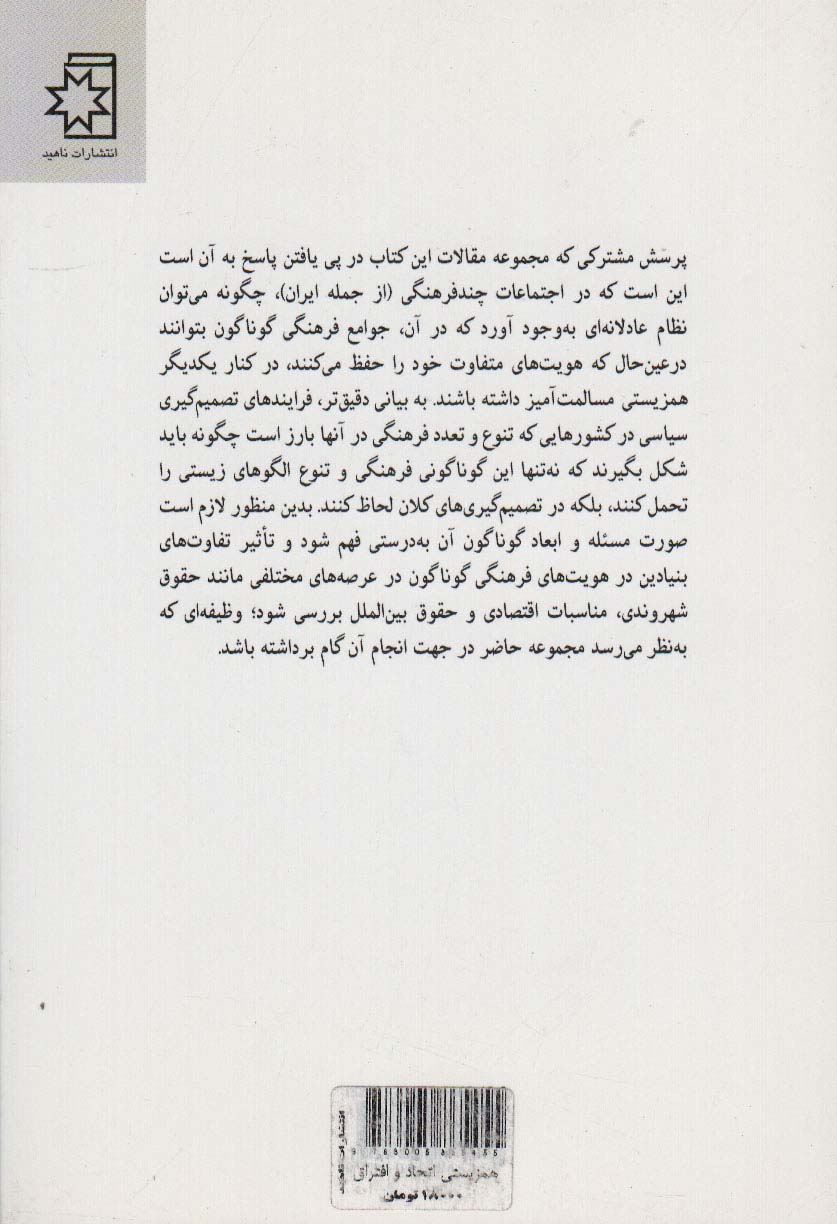 انتشارات ناهید
پرسش مشترکی که مجموعه مقالات این کتاب در پی یافتن پاسخ به آن است
این است که در اجتماعات چندفرهنگی (از جمله ایران)، چگونه می‌توان
نظام عادلانه‌ای به‌وجود آورد که در آن، جوامع فرهنگی گوناگون بتوانند
درعین‌حال که هویت‌های متفاوت خود را حفظ می‌کنند، در کنار یکدیگر
همزیستی مسالمت‌آمیز داشته باشند. به بیانی دقیق‌تر، فرایندهای تصمیم‌گیری
سیاسی در کشورهایی که تنوع و تعدد فرهنگی در آنها بارز است چگونه باید
شکل بگیرند که نه‌تنها این گوناگونی فرهنگی و تنوع الگوهای زیستی را
تحمل کنند، بلکه در تصمیم‌گیری‌های کلان لحاظ کنند. بدین منظور لازم است
صورت مسئله و ابعاد گوناگون آن به‌درستی فهم شود و تأثیر تفاوت‌های
بنیادین در هویت‌های فرهنگی گوناگون در عرصه‌های مختلفی مانند حقوق
شهروندی، مناسبات اقتصادی و حقوق بین‌الملل بررسی شود؛ وظیفه‌ای که
به‌نظر می‌رسد مجموعه حاضر در جهت انجام آن گام برداشته باشد.
انتشارات ناهید
همزیستی اتحاد و افتراق
۱۸۰۰۰ تومان